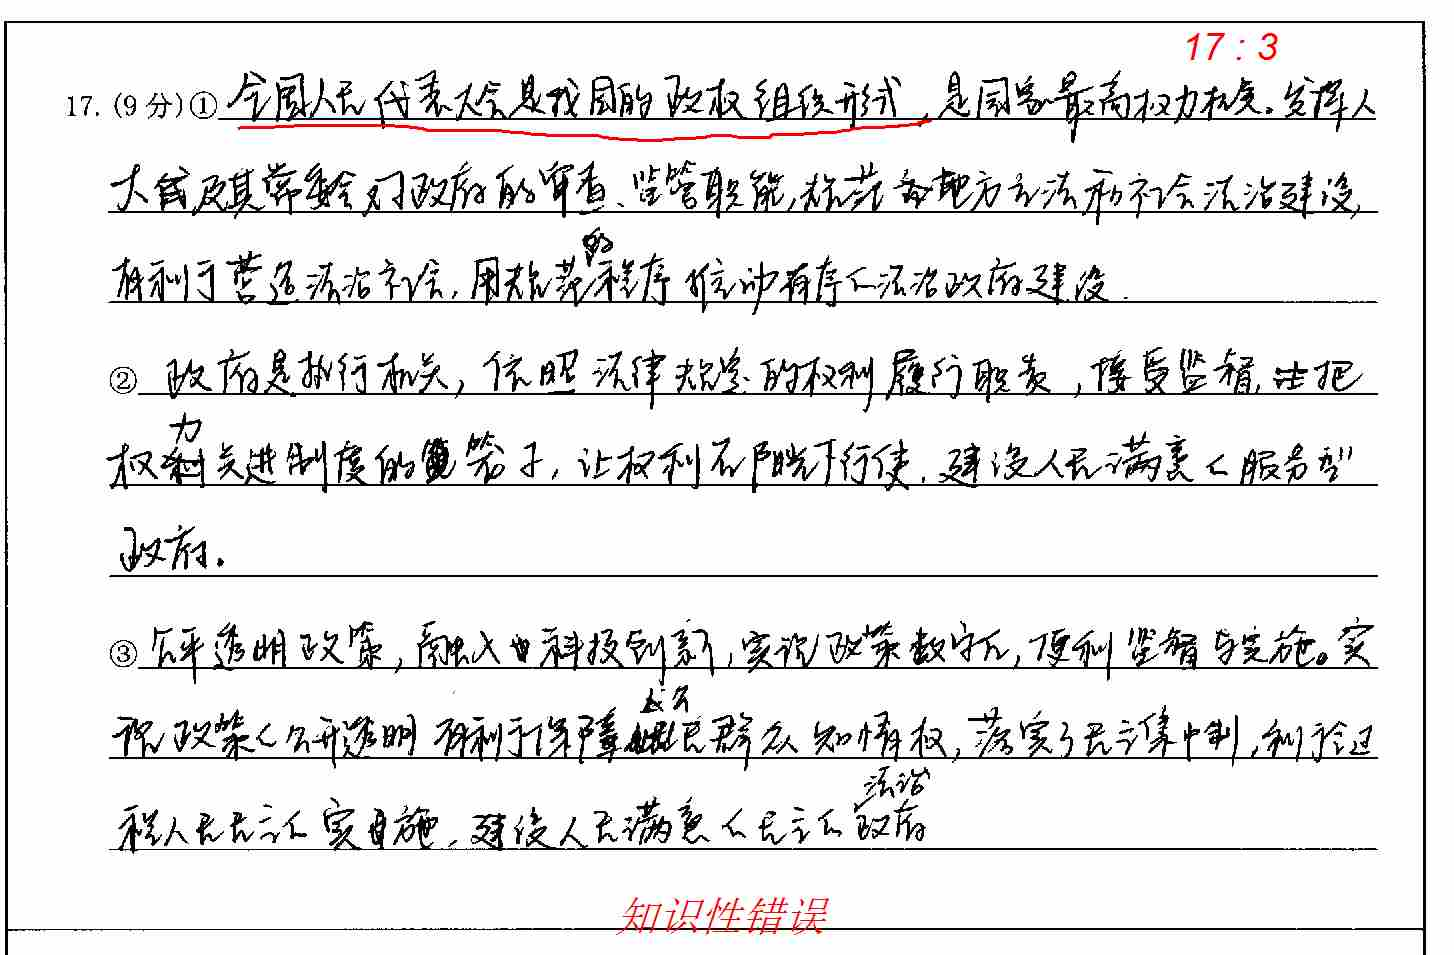 17:3
17. (9分)①全国人民代表大会是我国的政权组织形式,是国家最高权力机关。发挥人
大会及其常委会对政府的审查、监管职能,规范 地方立法和社会法治建设,
有利于营造法治社会,用规范的程序推动有序化法治政府建设.
② 政府是执行机关,依照法律规定的权利履行职责,接受监督, 把
权力关进制度的笼子,让权利在阳光下行使,建设人民满意的服务型
政府。
③ 公平透明政策,融入 科技创新,实现政策数字化,便利监督与实施。实
现政策的公开透明 有利于保障人民群众知情权,落实了民主集中制,利于全过
程人民民主的实 施,建设人民满意的民主的法治政府
知识性错误